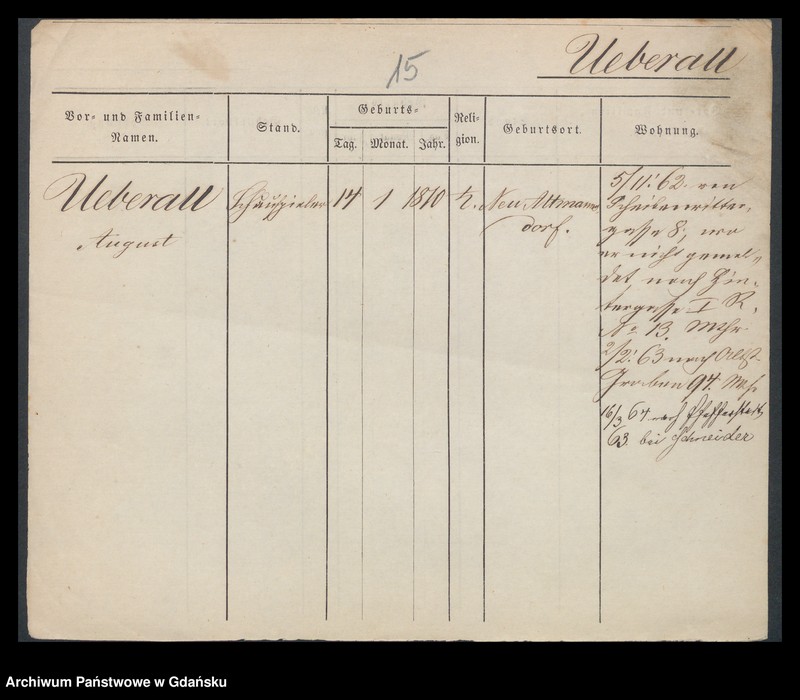 15
Ueberall
Vor- und Familien-
Namen.
Stand.
Geburts-
Tag.
Monat.
Jahr.
Reli-
gion.
Geburtsort.
Wohnung.
Ueberall
August
Schauspieler
14
1
1810
k.
Neu Altmanns
dorf.
5/11. 62. von
Scheibenritter-
gasse 8, wo
er nicht gemel-
det, nach Hin-
tergasse I R.
No 13.
2/2. 63 nach Altst.
Graben 94.
16/3 64 nach Pfefferstadt
63. bei Schneider
Archiwum Państwowe w Gdańsku